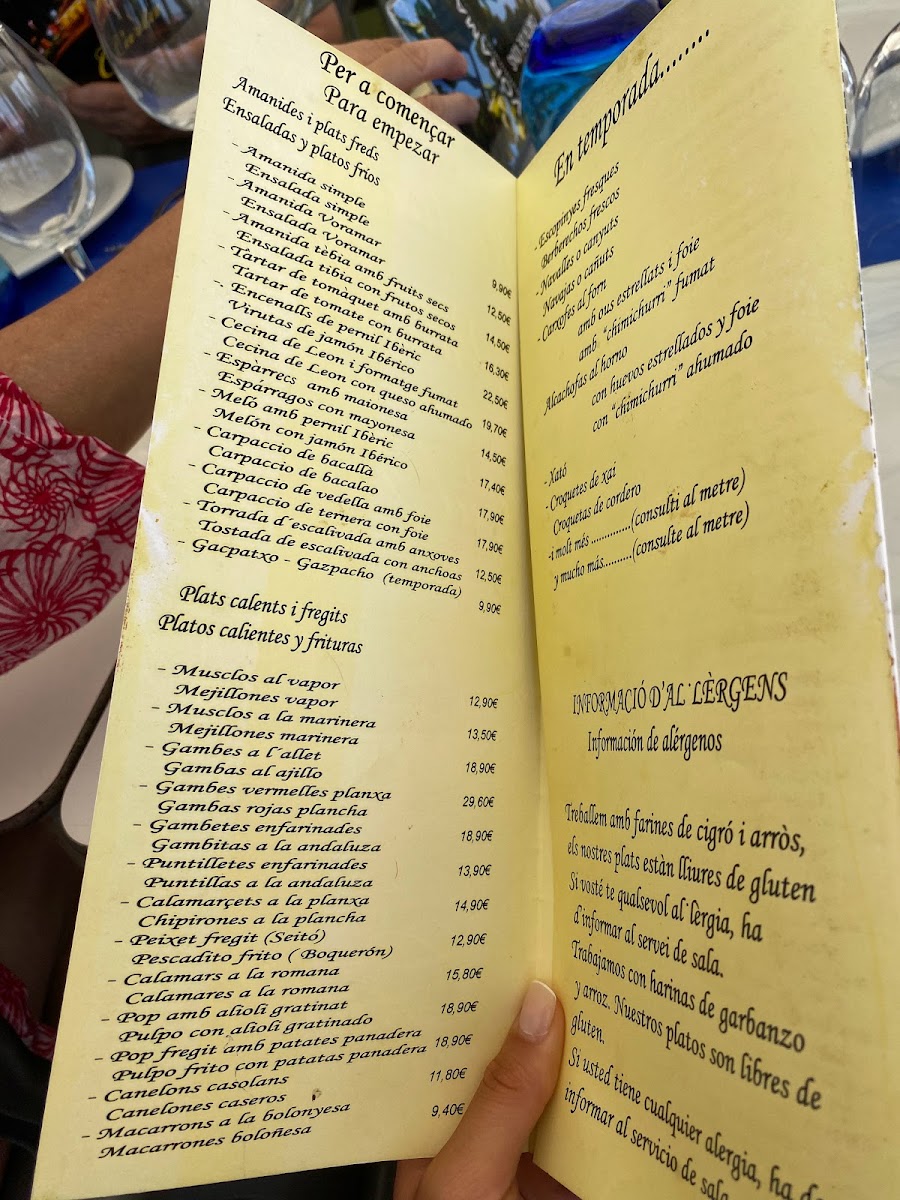 Per a començar
Para empezar
Amanides i plats freds
Ensaladas y platos fríos
- Amanida simple
Ensalada simple 9,90€
- Amanida Voramar
Ensalada Voramar 12,50€
- Amanida tèbia amb fruits secs
Ensalada tibia con frutos secos 14,50€
- Tàrtar de tomàquet amb burrata
Tartar de tomate con burrata 16,30€
- Encenalls de pernil Ibèric
Virutas de jamón Ibérico 22,50€
- Cecina de Leon i formatge fumat
Cecina de Leon con queso ahumado 19,70€
- Espàrrecs amb maionesa
Espárragos con mayonesa 14,50€
- Meló amb pernil Ibèric
Melón con jamón Ibérico 17,40€
- Carpaccio de bacallà
Carpaccio de bacalao 17,90€
- Carpaccio de vedella amb foie
Carpaccio de ternera con foie 17,90€
- Torrada d´escalivada amb anxoves
Tostada de escalivada con anchoas 12,50€
- Gacpatxo - Gazpacho (temporada) 9,90€
Plats calents i fregits
Platos calientes y frituras
- Musclos al vapor
Mejillones vapor 12,90€
- Musclos a la marinera
Mejillones marinera 13,50€
- Gambes a l´allet
Gambas al ajillo 18,90€
- Gambes vermelles planxa
Gambas rojas plancha 29,60€
- Gambetes enfarinades
Gambitas a la andaluza 18,90€
- Puntilletes enfarinades
Puntillas a la andaluza 13,90€
- Calamarçets a la planxa
Chipirones a la plancha 14,90€
- Peixet fregit (Seitó)
Pescadito frito ( Boquerón) 12,90€
- Calamars a la romana
Calamares a la romana 15,80€
- Pop amb alioli gratinat
Pulpo con alioli gratinado 18,90€
- Pop fregit amb patates panadera
Pulpo frito con patatas panadera 18,90€
- Canelons casolans
Canelones caseros 11,80€
- Macarrons a la bolonyesa
Macarrones boloñesa 9,40€
En temporada........
- Escopinyes fresques
Berberechos frescos
- Navalles o canyuts
Navajas o cañuts
- Carxofes al forn
amb ous estrellats i foie
amb "chimichurri" fumat
Alcachofas al horno
con huevos estrellados y foie
con "chimichurri" ahumado
- Xató
- Croquetes de xai
Croquetas de cordero
-i molt més .............(consulti al metre)
y mucho más.........(consulte al metre)
INFORMACIÓ D'AL·LÈRGENS
Información de alérgenos
Treballem amb farines de cigró i arròs,
els nostres plats estàn lliures de gluten
Si vosté te qualsevol al·lèrgia, ha
d'informar al servei de sala.
Trabajamos con harinas de garbanzo
y arroz. Nuestros platos son libres de
gluten.
Si usted tiene cualquier alergia, ha de
informar al servicio de sala